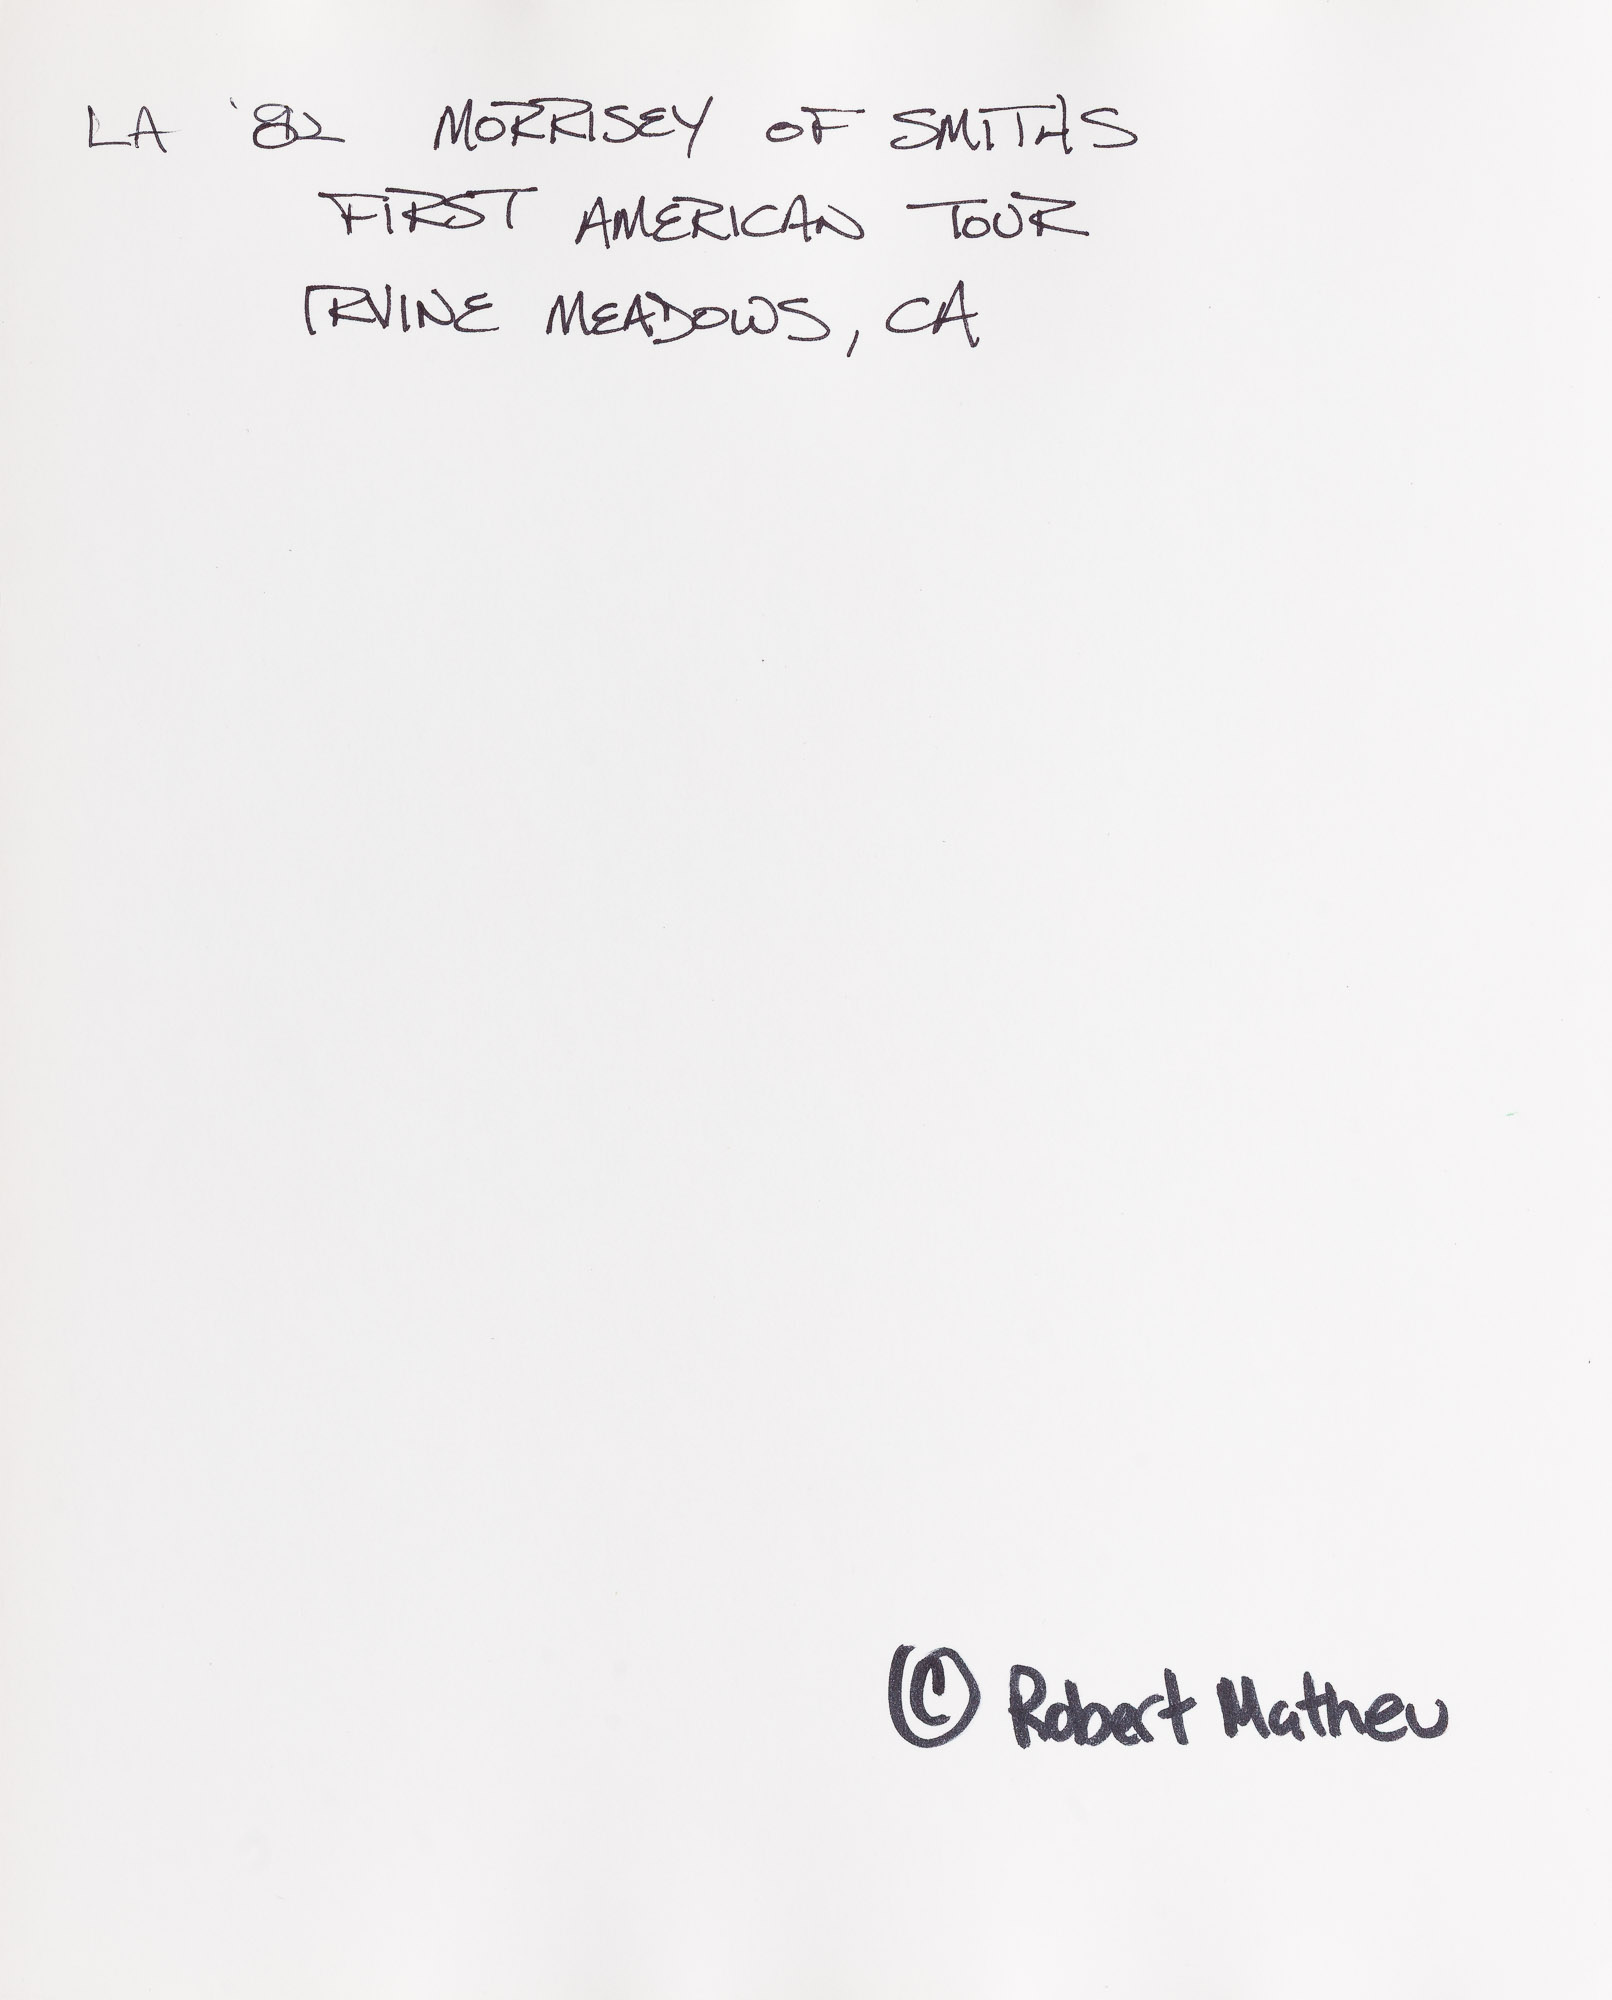 LA '82 MORRISEY OF SMITHS
FIRST AMERICAN TOUR
IRVINE MEADOWS, CA
© Robert Matheu